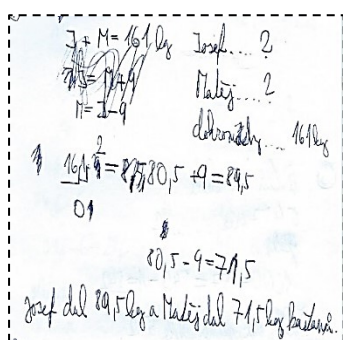 J + M = 161 kg Josef.... ?
J = M + 9 Matěj.... ?
M = J - 9
dohromady.... 161 kg
161 : 2 = 80,5 + 9 = 89,5
01
80,5 - 9 = 71,5
Josef dal 89,5 kg a Matěj dal 71,5 kg kaštanů.